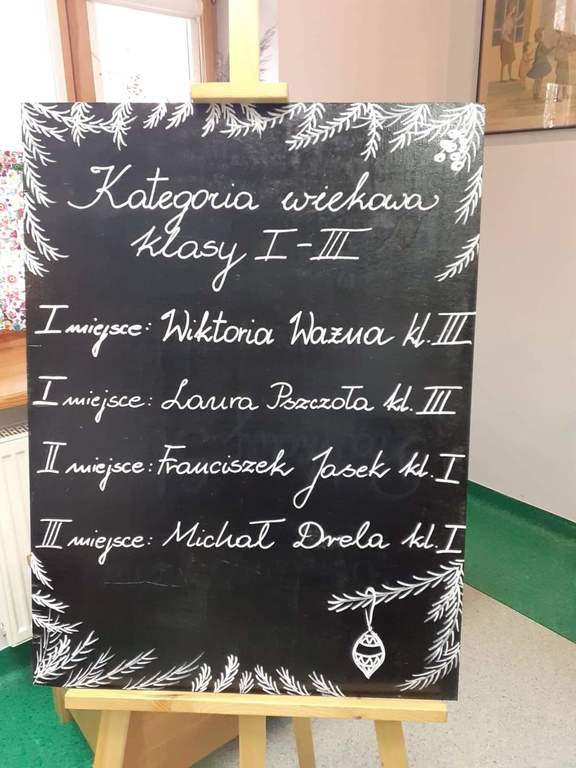 Kategoria wiekowa
klasy I-III
I miejsce: Wiktoria Ważna kl. III
I miejsce: Laura Pszczoła kl. III
II miejsce: Franciszek Jasek kl. I
III miejsce: Michał Drela kl. I